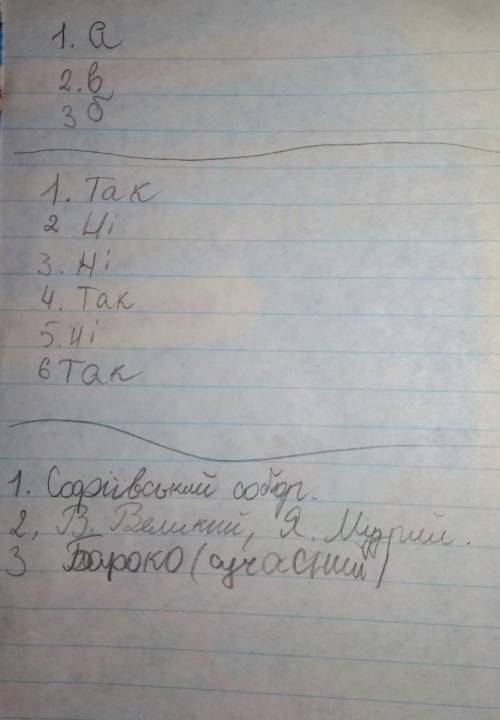 1. а
2. в
3 б
1. Так
2 Ні
3. Ні
4. Так
5. Ні
6 Так
1. Софіївський собор.
2, В. Великий, Я. Мудрий.
3 Бароко (сучасний)